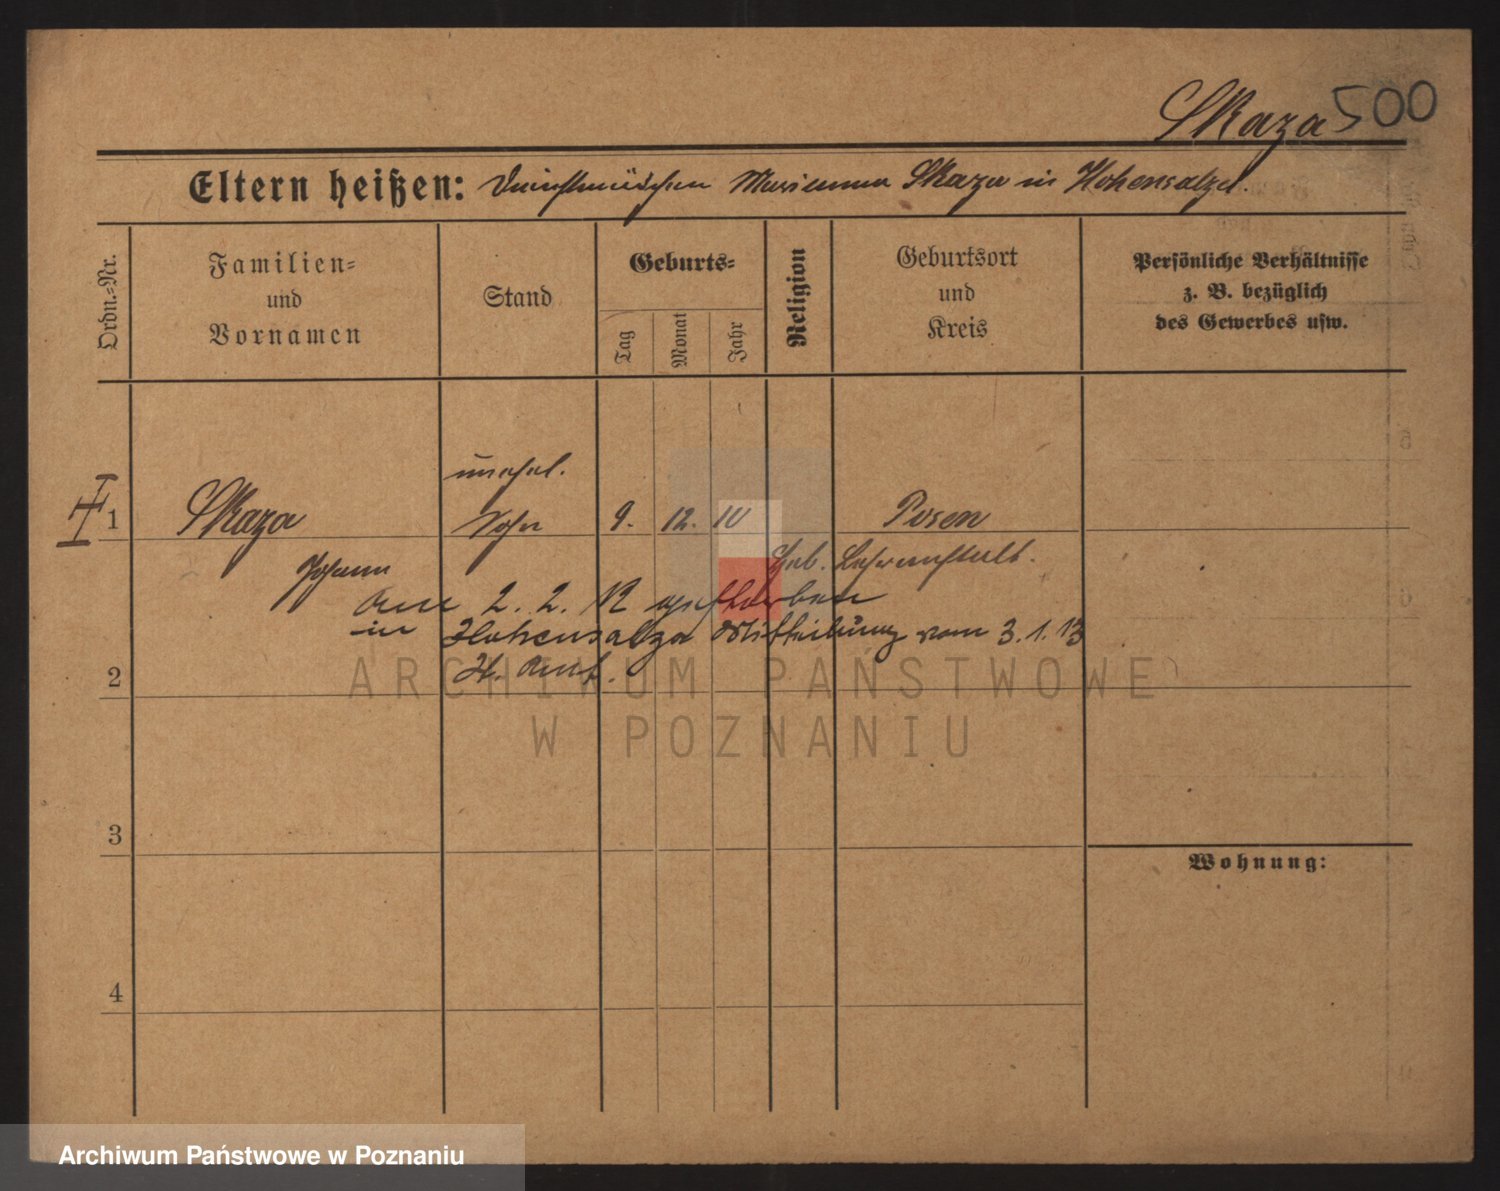 Skaza 500
Eltern heißen: Dienstmädchen Marianna Skaza in Hohensalza.
Ordn.-Nr.
Familien-
und
Vornamen
Stand
Geburts-
Tag
Monat
Jahr
Religion
Geburtsort
und
Kreis
Persönliche Verhältnisse
z. B. bezüglich
des Gewerbes usw.
unehel.
1 Skaza Sohn 9. 12. 10 Posen
Johann Heb. Lehranstalt.
am 2. 2. 12 gestorben
in Hohensalza Mitteilung vom 3.1.13
2 St. Amt.
ARCHIWUM PAŃSTWOWE
W POZNANIU
3
Wohnung:
4
Archiwum Państwowe w Poznaniu